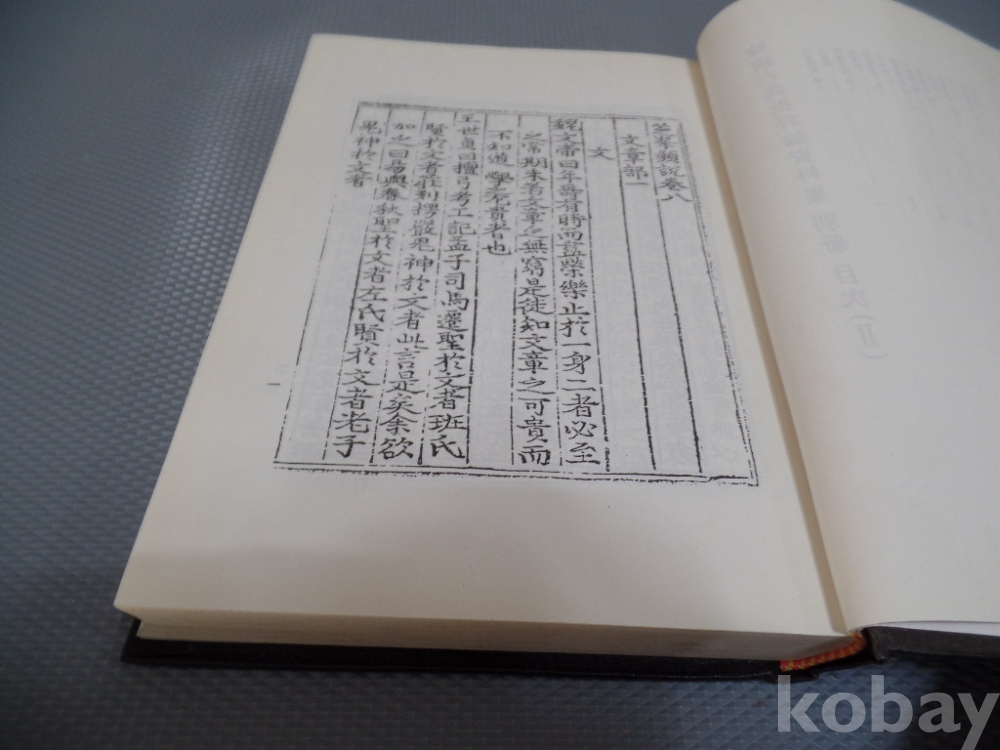 別冊 目次(II)
芝峯類說卷八
文章部一
文
魏文帝曰年壽有時而盡榮樂止於一身二者必至
之常期未若文章之無窮是徒知文章之可貴而
不知道學尤貴者也
王世貞曰檀弓考工記孟子司馬遷聖於文者班氏
賢於文者莊列楞嚴鬼神於文者此言是矣余欲
加之曰易與春秋聖於文者左氏賢於文者老子
鬼神於文者
一
kobay